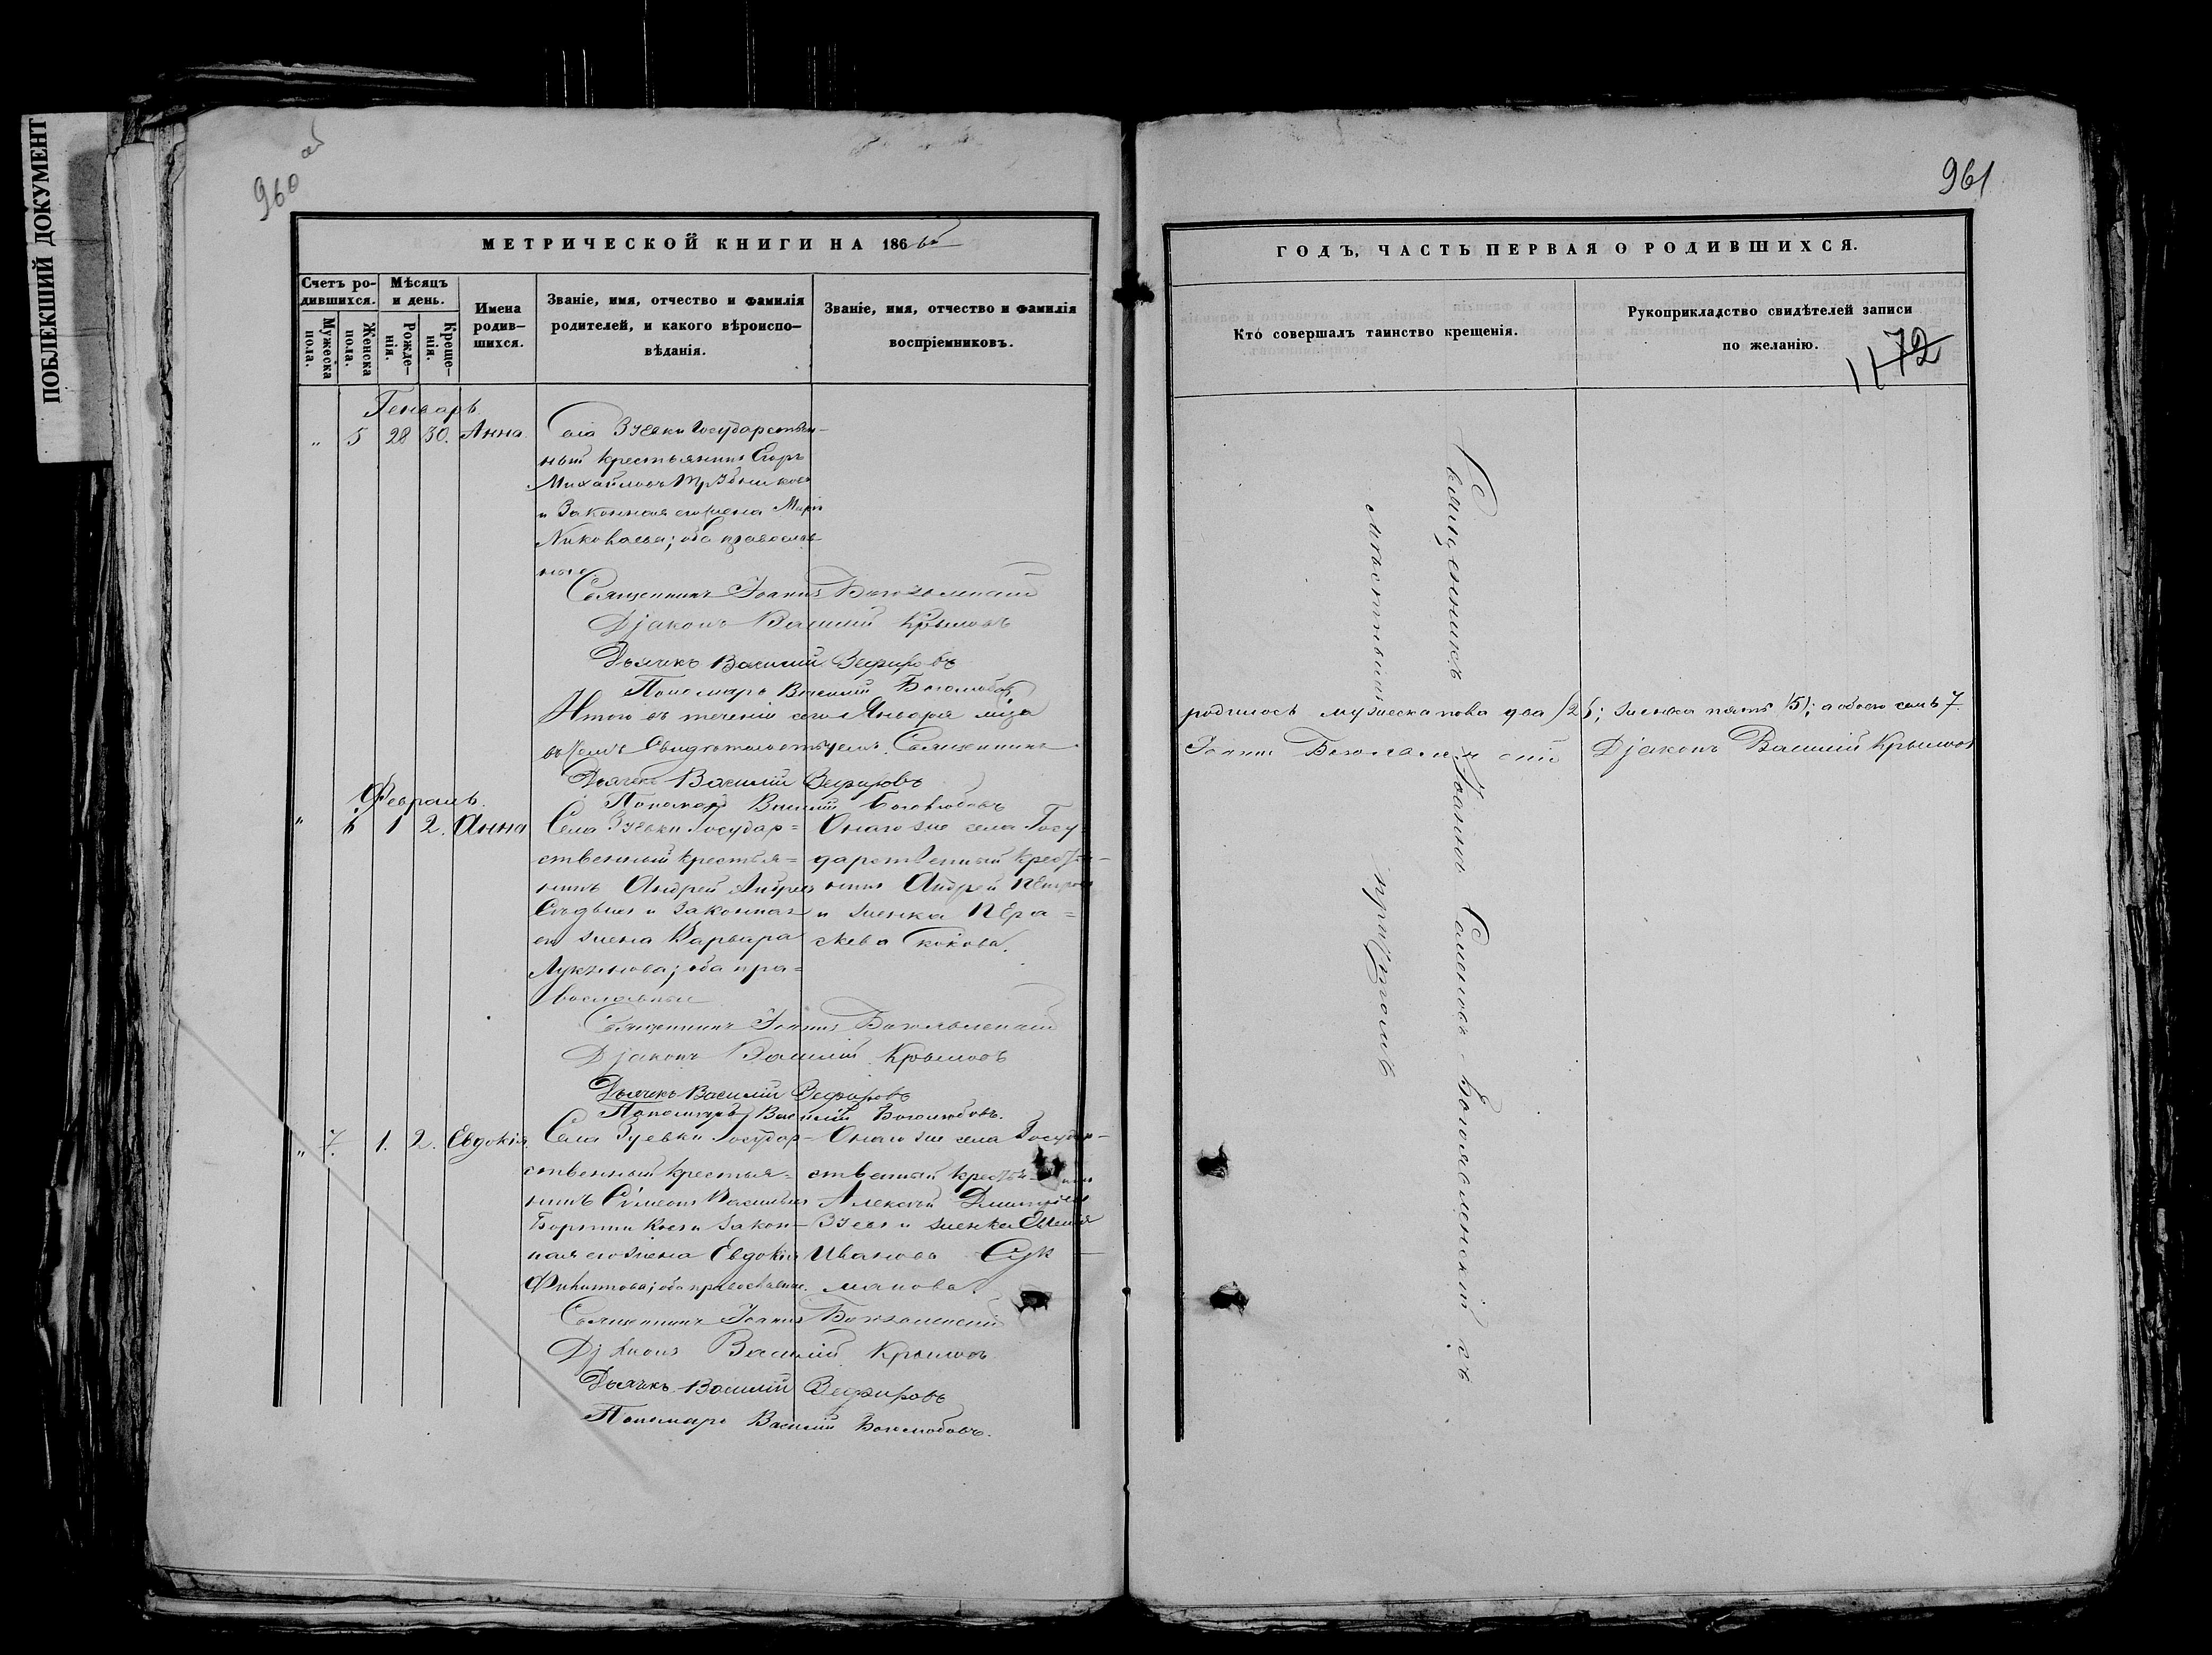 ПОБЛЕКШИЙ ДОКУМЕНТ
960 об
МЕТРИЧЕСКОЙ КНИГИ НА 1866
Счетъ ро-
дившихся.
Мужеска
пола.
Женска
пола.
Мѣсяцъ
и день.
Рожде-
нія.
Креще-
нія.
Имена
родив-
шихся.
Званіе, имя, отчество и фамилія
родителей, и какого вѣроиспо-
вѣданія.
Званіе, имя, отчество и фамилія
воспріемниковъ.
Генварь
" 5 28 30. Анна
Села Зуевки Государствен-
ный крестьянинъ Егоръ
Михайловъ
и Законная его жена
Николаева; оба православ
ные.
Священникъ Іоаннъ Богоявленскій
Діаконъ Василій Крыловъ
Дьячекъ Василій Зефировъ
Пономарь Василій Боголюбовъ
Итого въ теченіи сего Января мѣца
въ чемъ свидѣтельствуемъ. Священникъ
Дьячекъ Василій Зефировъ
Пономарь Василій Боголюбовъ
Февраль.
" 6 1 2. Анна
Села Зуевки Государ=
ственный крестья=
нинъ Андрей Андреевъ
и Законная
его жена Варвара
Лукьянова; оба пра=
вославные
Онаго же села Госу
дарственный крестья-
нинъ Андрей Петровъ
и женка Пера=
скева Гокова.
Священникъ Іоаннъ Богоявленскій
Діаконъ Василій Крыловъ
Дьячекъ Василій Зефировъ
Пономарь Василій Боголюбовъ.
" 7. 1. 2. Евдокія.
Села Зуевки Государ-
ственный крестья=
нинъ Симеонъ Васильевъ
и Закон-
ная его жена Евдокія
оба православные.
Онаго же села Государ-
ственный крестья-нинъ
Алексѣй Дмитріевъ
Зуевъ и женка
Иванова
Священникъ Іоаннъ Богоявленскій
Діаконъ Василій Крыловъ
Дьячекъ Василій Зефировъ
Пономарь Василій Боголюбовъ.
961
ГОДЪ, ЧАСТЬ ПЕРВАЯ О РОДИВШИХСЯ.
Кто совершалъ таинство крещенія.
Рукоприкладство свидѣтелей записи
по желанію.
1172
родилось мужеска пола два (2); женска пять (5); а обоего семь 7.
Іоаннъ Богоявленскій Діаконъ Василій Крыловъ
Священникъ Іоаннъ Семеновъ Богоявленскій съ
мѣстнымъ причтомъ